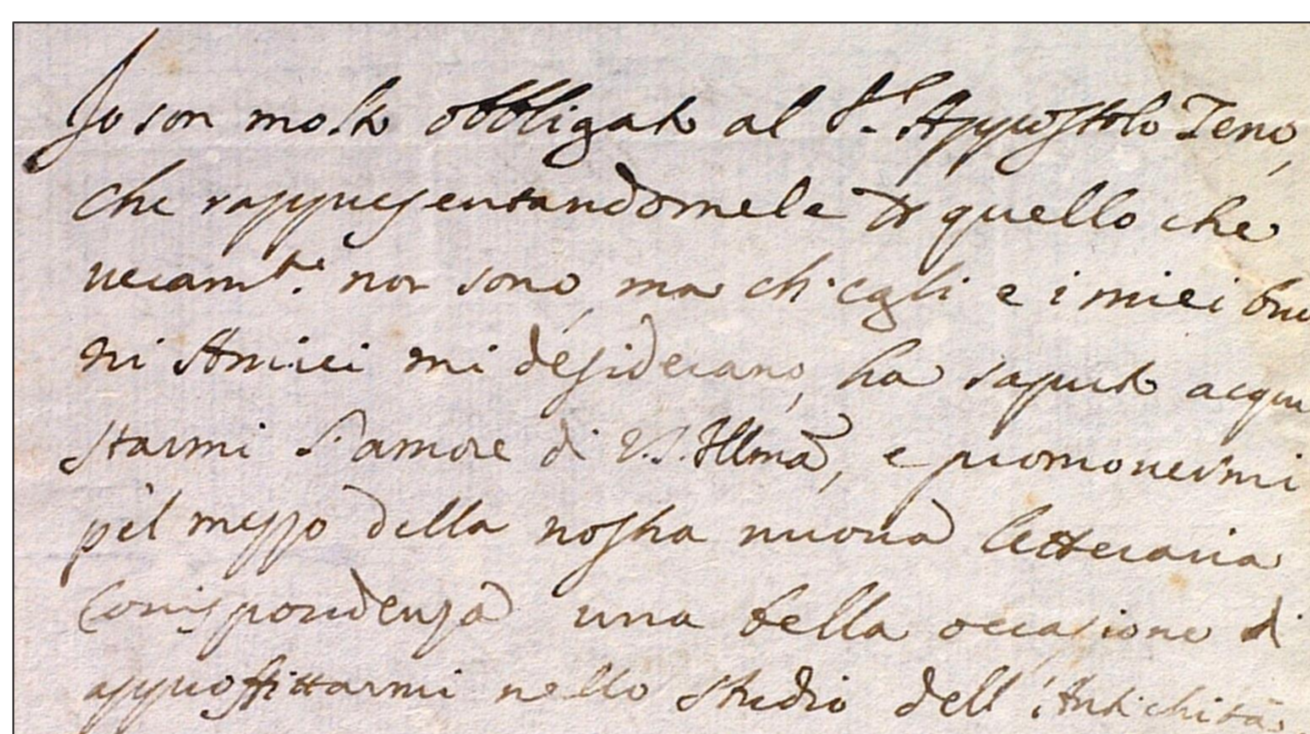 Io son molto obbligato al S.r Appostolo Zeno,
che rappresentandomele per quello che
veram.te non sono, ma ch'egli e i miei buo
ni Amici mi desiderano, ha saputo acqui
starmi l'amore di V.S. Illma, e promovermi
pel mezzo della nostra nuova letteraria
Corrispondenza una bella occasione di
approffittarmi nello studio dell'Antichità